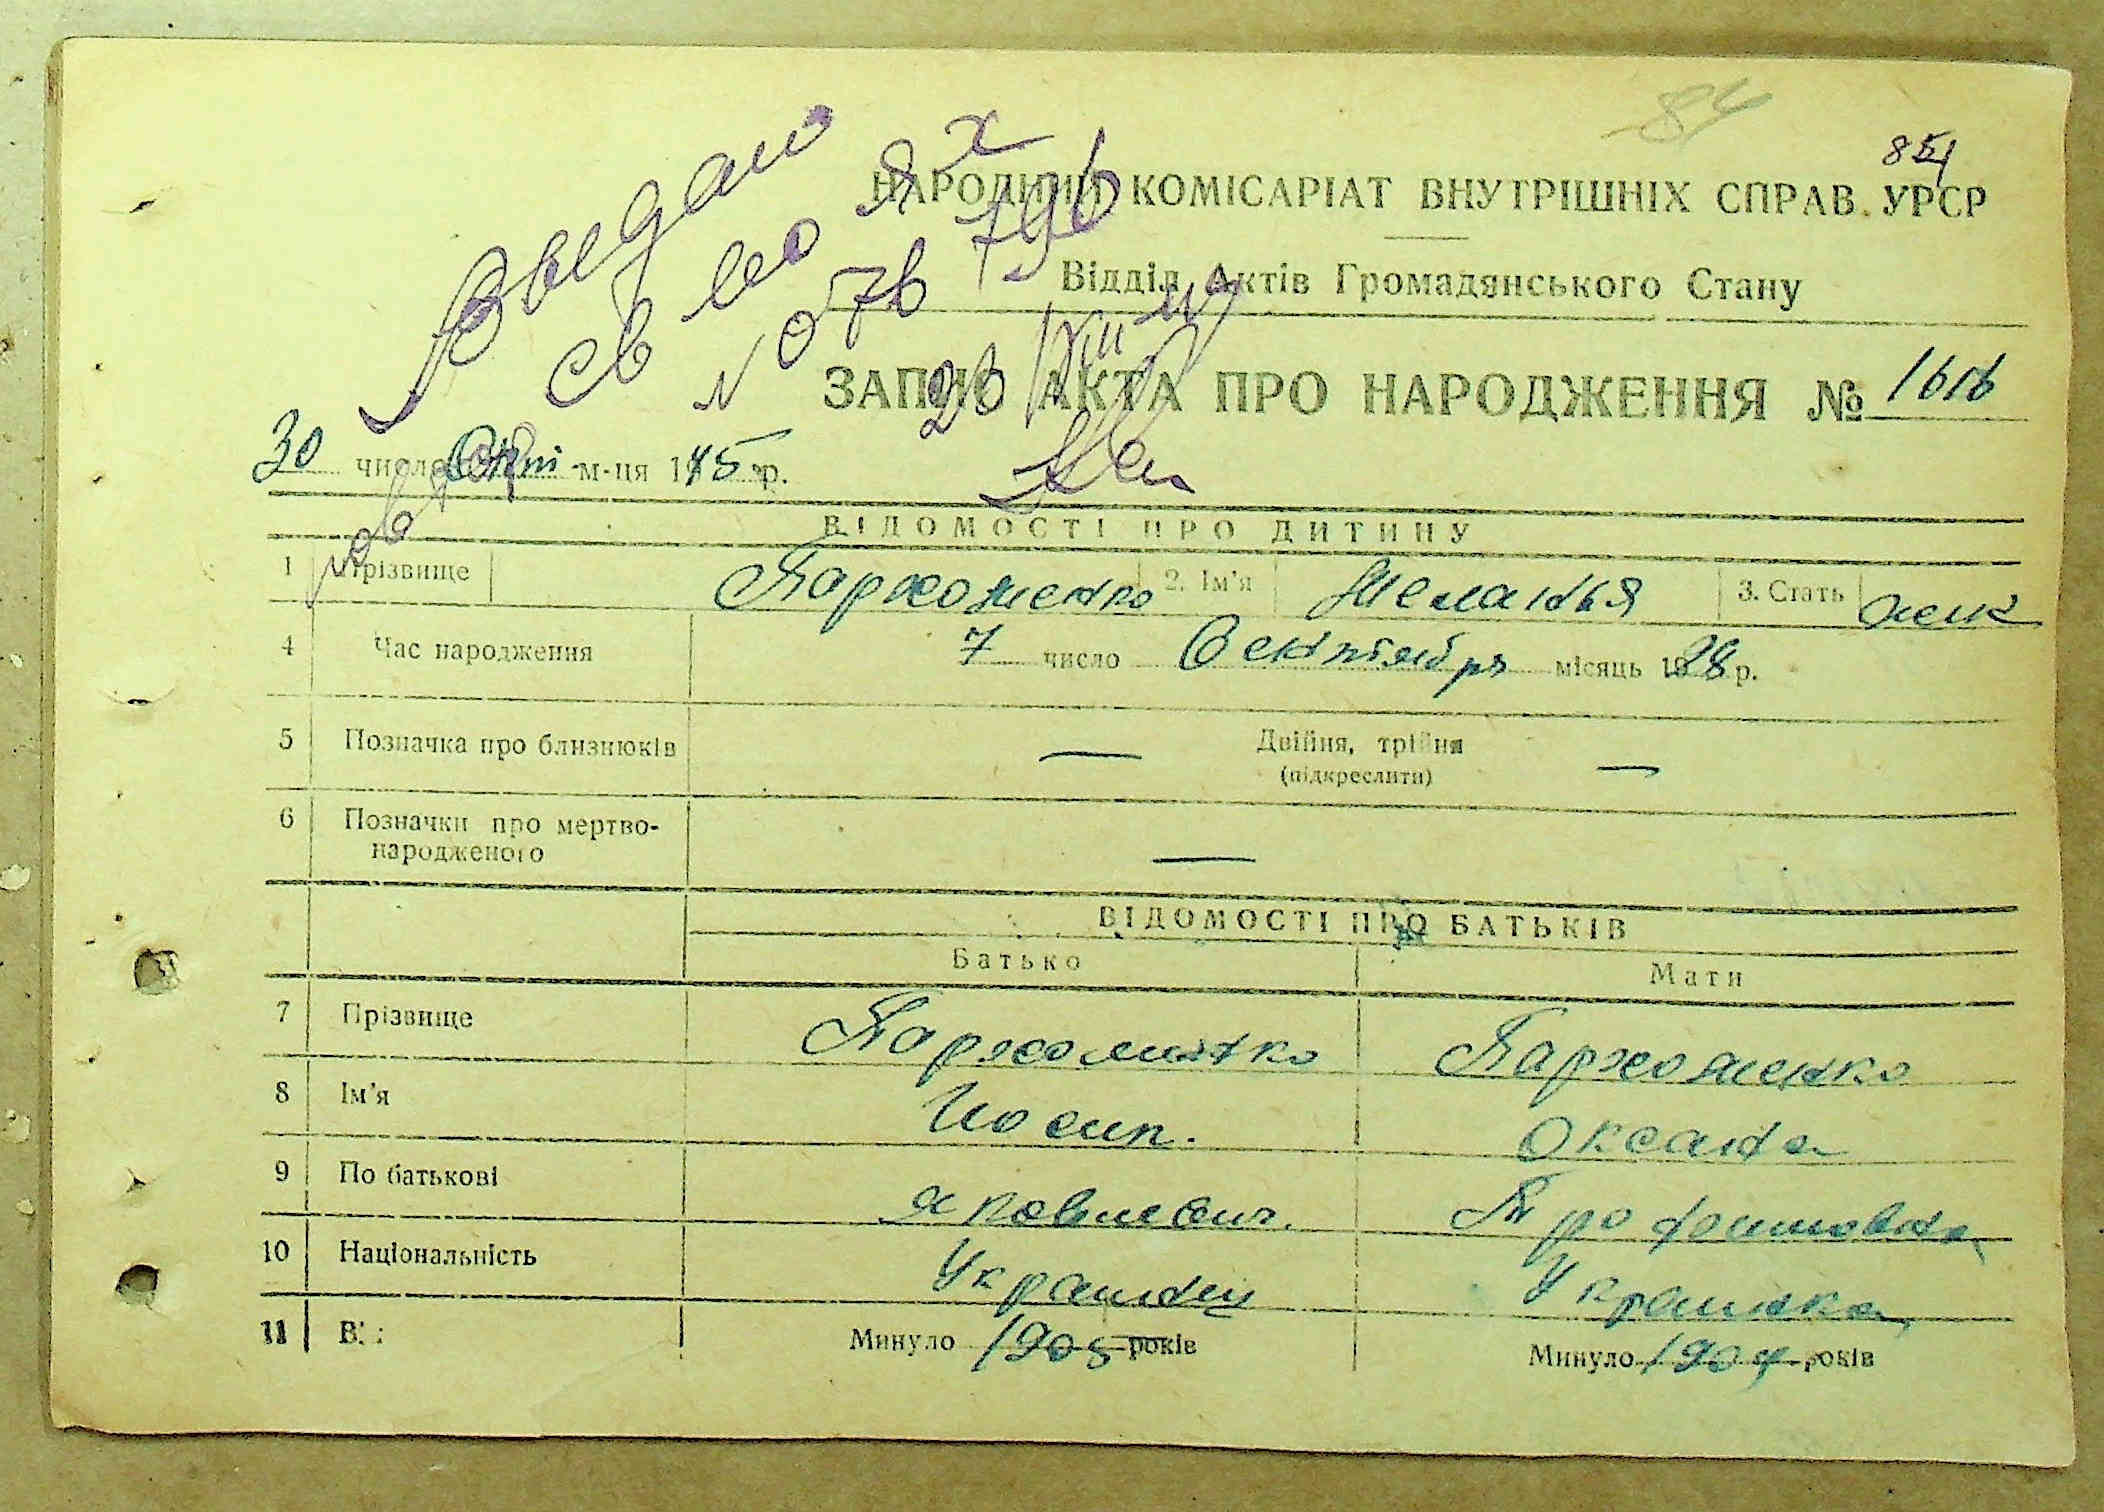 84
854
НАРОДНИЙ КОМІСАРІАТ ВНУТРІШНІХ СПРАВ УРСР
Відділ Актів Громадянського Стану
Выдано
св во ЯХ
N 076796
ЗАПИС АКТА ПРО НАРОДЖЕННЯ № 1616
30 число Окт м-ця 1945 р.
ВІДОМОСТІ ПРО ДИТИНУ
1 Прізвище Пархоменко 2. Ім'я Меланья 3. Стать жен
4 Час народження 7 число Сентября місяць 1928 р.
5 Позначка про близнюків — Двійня, трійня —
(підкреслити)
6 Позначки про мертво-
народженого —
ВІДОМОСТІ ПРО БАТЬКІВ
Батько Мати
7 Прізвище Пархоменко Пархоменко
8 Ім'я Иосип. Оксана
9 По батькові Яковлевич. Трофимовна
10 Національність Украинец Украинка
11 Минуло 1905 років Минуло 1904 років